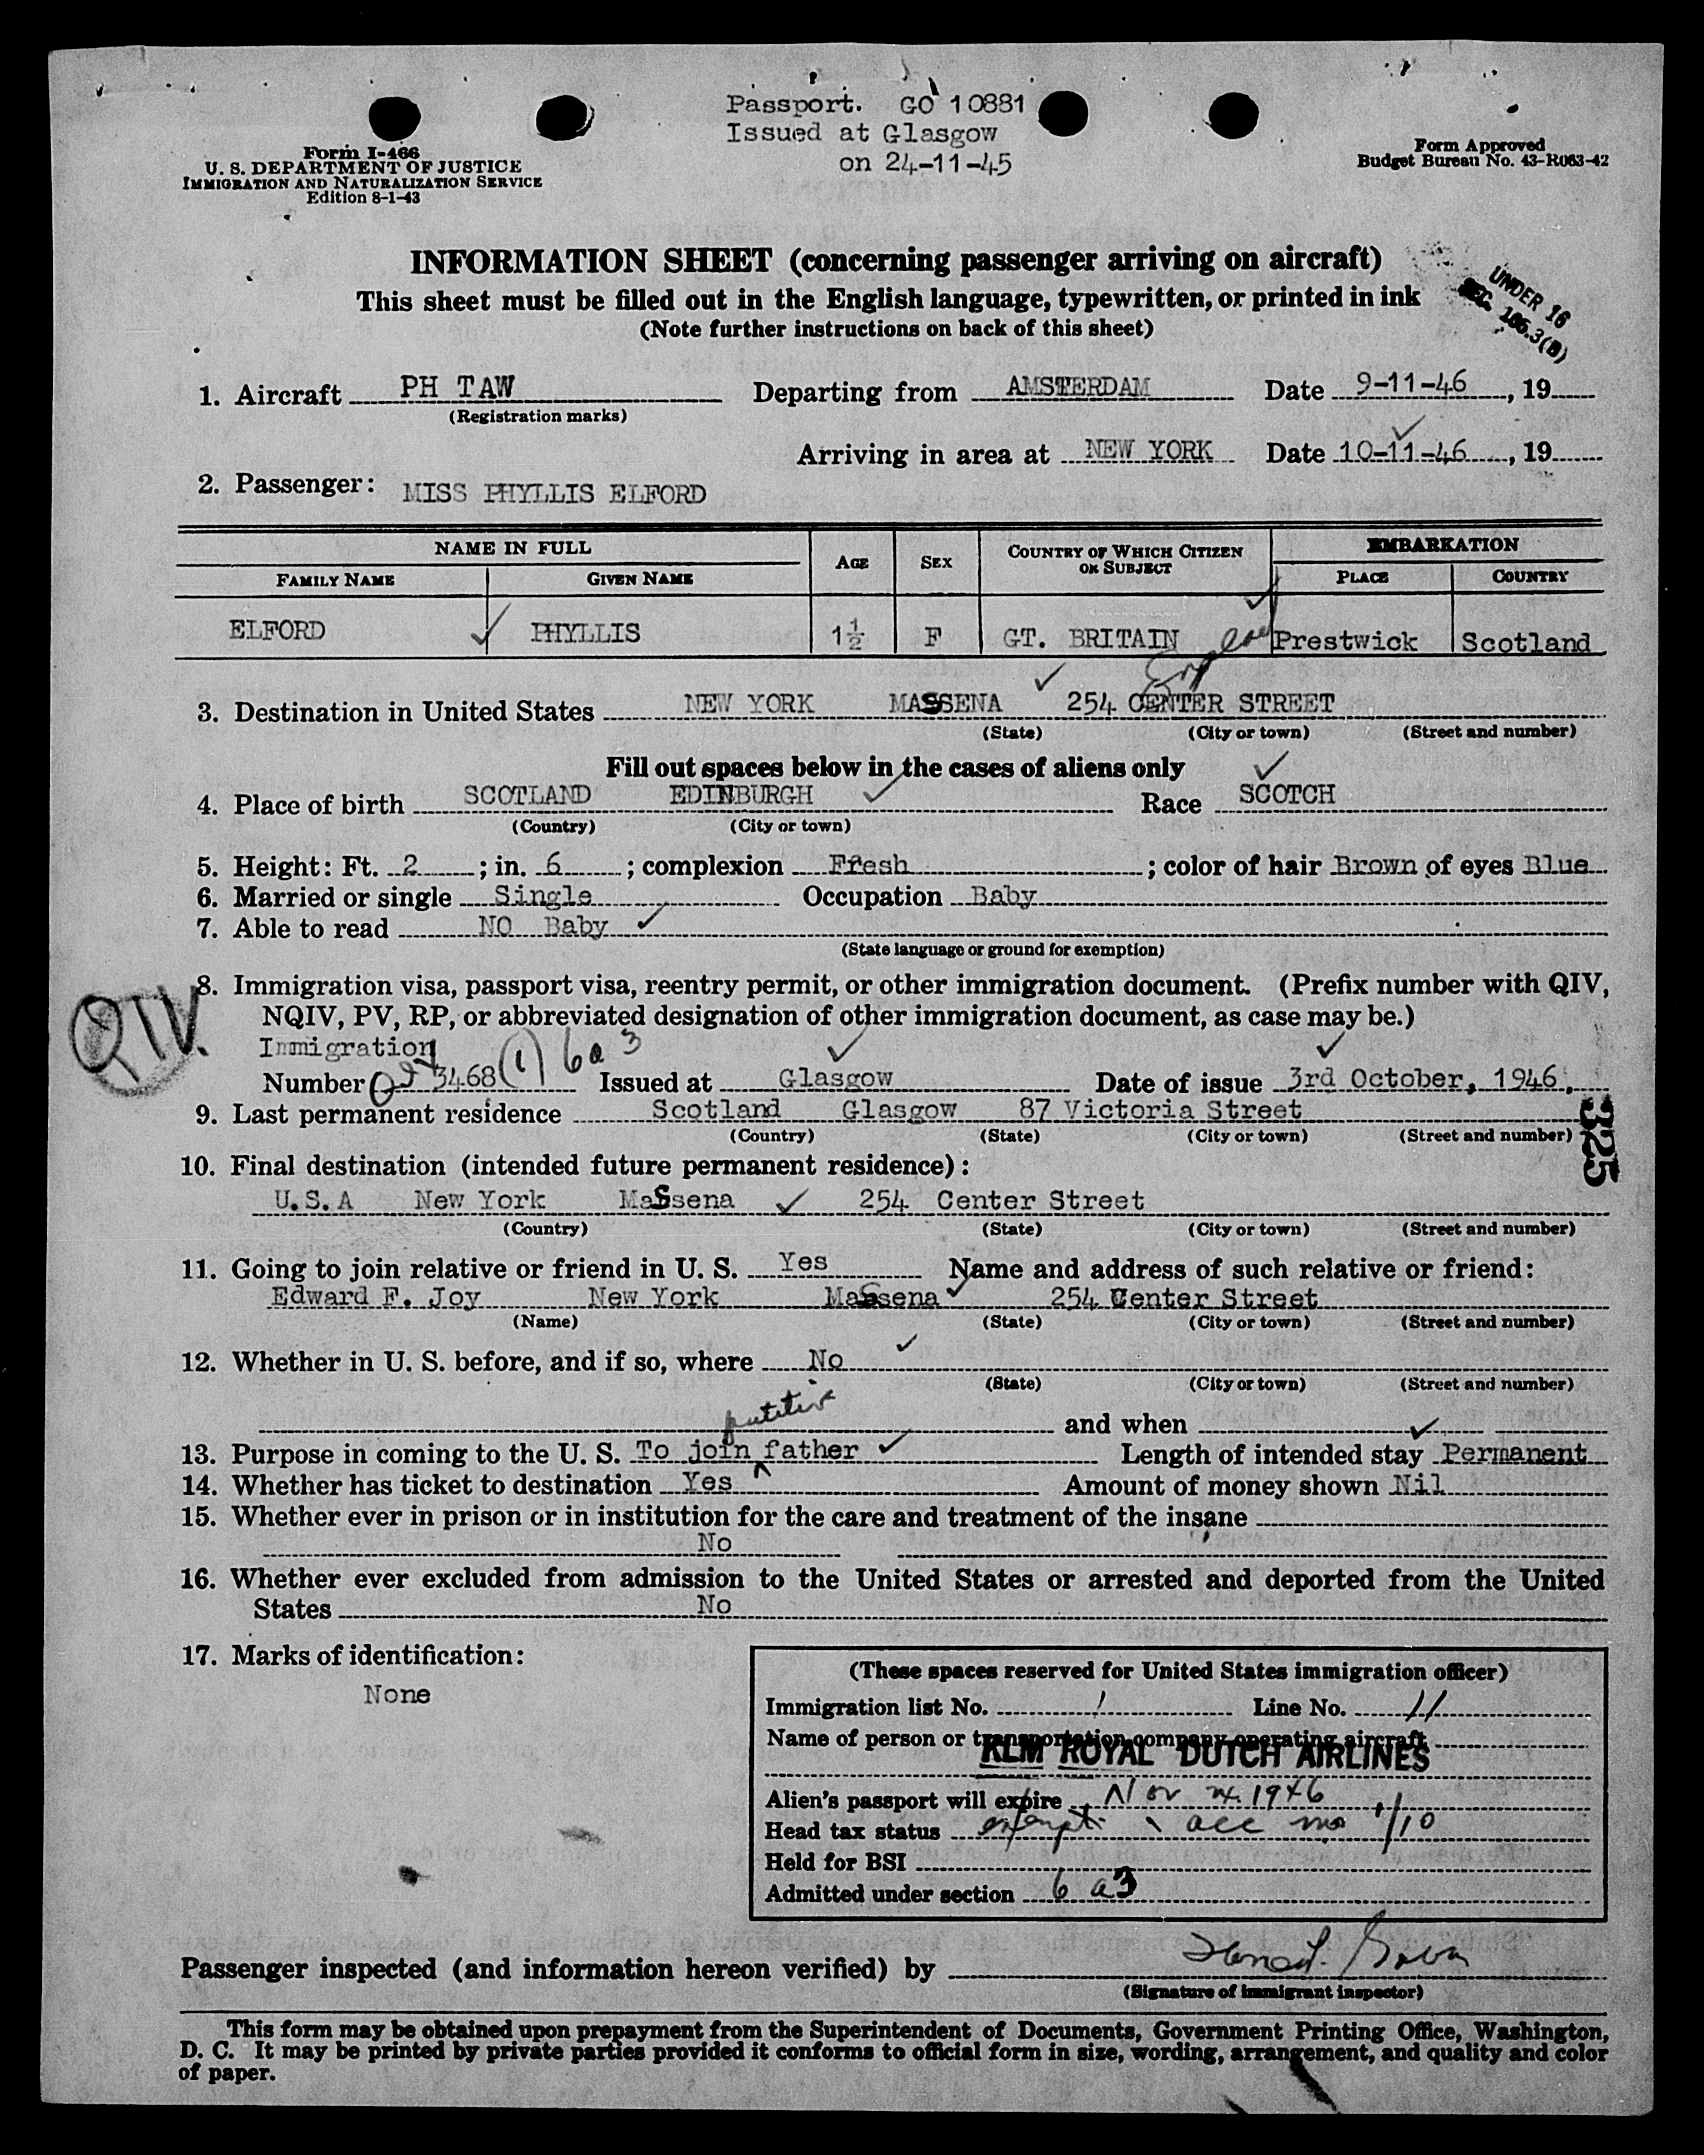 Passport. GO 10881
Issued at Glasgow
on 24-11-45
Form I-466
U. S. DEPARTMENT OF JUSTICE
IMMIGRATION AND NATURALIZATION SERVICE
Edition 8-1-43
Form Approved
Budget Bureau No. 43-R063-42
INFORMATION SHEET (concerning passenger arriving on aircraft)
This sheet must be filled out in the English language, typewritten, or printed in ink
(Note further instructions on back of this sheet)
UNDER 16
SEC. 166.3(B)
1. Aircraft PH TAW Departing from AMSTERDAM Date 9-11-46, 19
(Registration marks)
Arriving in area at NEW YORK Date 10-11-46, 19
2. Passenger: MISS PHYLLIS ELFORD
NAME IN FULL AGE SEX COUNTRY OF WHICH CITIZEN OR SUBJECT EMBARKATION
FAMILY NAME GIVEN NAME PLACE COUNTRY
ELFORD PHYLLIS 1½ F GT. BRITAIN Prestwick Scotland
3. Destination in United States NEW YORK MASSENA 254 CENTER STREET
(State) (City or town) (Street and number)
Fill out spaces below in the cases of aliens only
4. Place of birth SCOTLAND EDINBURGH Race SCOTCH
(Country) (City or town)
5. Height: Ft. 2; in. 6; complexion Fresh; color of hair Brown of eyes Blue
6. Married or single Single Occupation Baby
7. Able to read NO Baby
(State language or ground for exemption)
QIV.
8. Immigration visa, passport visa, reentry permit, or other immigration document. (Prefix number with QIV,
NQIV, PV, RP, or abbreviated designation of other immigration document, as case may be.)
Immigration
Number QIV 3468 (1) 6a3 Issued at Glasgow Date of issue 3rd October, 1946.
9. Last permanent residence Scotland Glasgow 87 Victoria Street
(Country) (State) (City or town) (Street and number)
325
10. Final destination (intended future permanent residence):
U.S.A New York Massena 254 Center Street
(Country) (State) (City or town) (Street and number)
11. Going to join relative or friend in U. S. Yes Name and address of such relative or friend:
Edward F. Joy New York Massena 254 Center Street
(Name) (State) (City or town) (Street and number)
12. Whether in U. S. before, and if so, where No
(State) (City or town) (Street and number)
and when
putative
13. Purpose in coming to the U. S. To join father Length of intended stay Permanent
14. Whether has ticket to destination Yes Amount of money shown Nil
15. Whether ever in prison or in institution for the care and treatment of the insane
No
16. Whether ever excluded from admission to the United States or arrested and deported from the United
States No
17. Marks of identification:
None
(These spaces reserved for United States immigration officer)
Immigration list No. 1 Line No. 11
Name of person or transportation company operating aircraft
KLM ROYAL DUTCH AIRLINES
Alien's passport will expire Nov 24 1946
Head tax status exempt acc mo 1/10
Held for BSI
Admitted under section 6 a3
Passenger inspected (and information hereon verified) by
(Signature of immigrant inspector)
This form may be obtained upon prepayment from the Superintendent of Documents, Government Printing Office, Washington,
D. C. It may be printed by private parties provided it conforms to official form in size, wording, arrangement, and quality and color
of paper.